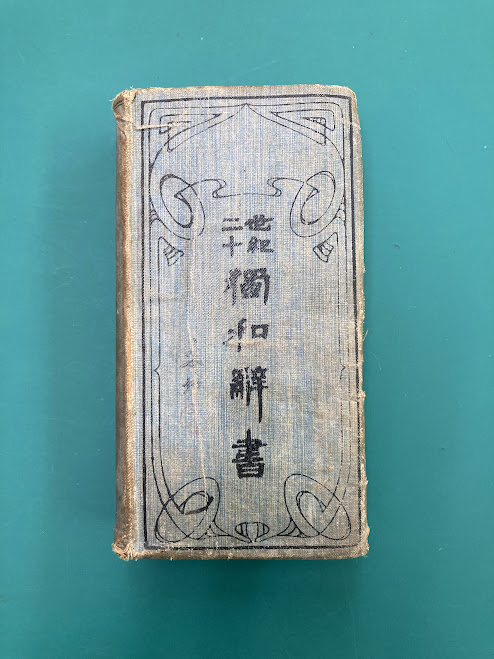 二十世紀
獨和辭書